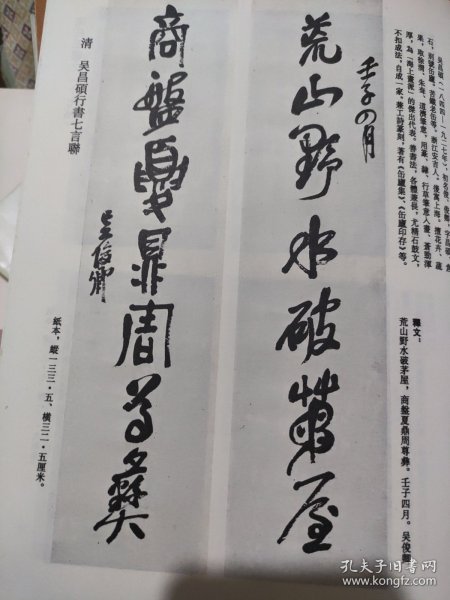 吳昌碩(一八四四—一九二七年),初名俊、俊卿,字昌碩、倉
石,別號缶廬、苦鐵老缶等,浙江安吉人。後寓上海,擅花卉、蔬
果,取徐渭、朱耷、道濟筆意,用篆、隸、行草筆意入畫,蒼勁渾
厚,為「海上畫派」的傑出代表。善書法,各體兼長,尤精石鼓文,
不扣成法,自成一家。兼工詩篆刻,著有《缶廬集》、《缶廬印存》等。
釋文:
荒山野水破茅屋,商盤夏鼎周尊彝。壬子四月。吳俊
壬子四月
荒山野水破茅屋
商盤夏鼎周尊彝
吳俊卿
清 吳昌碩行書七言聯
紙本,縱一三三·五、橫三二·五厘米。
孔夫子旧书网
www.kongfz.com